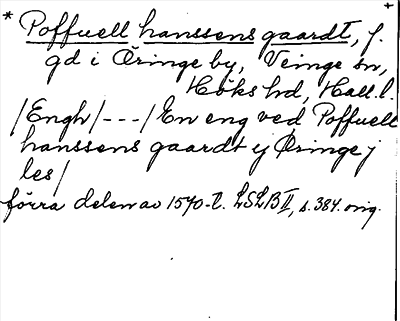 * Poffuell hanssens gaardt, f.
gd i Öringe by, Veinge sn,
Höks hd, Hall. l.
/Engh/---/En eng ved Poffuell
hanssens gaardt ij Øringe j
les/
förra delen av 1570-t. LSLB II, s. 384. orig.